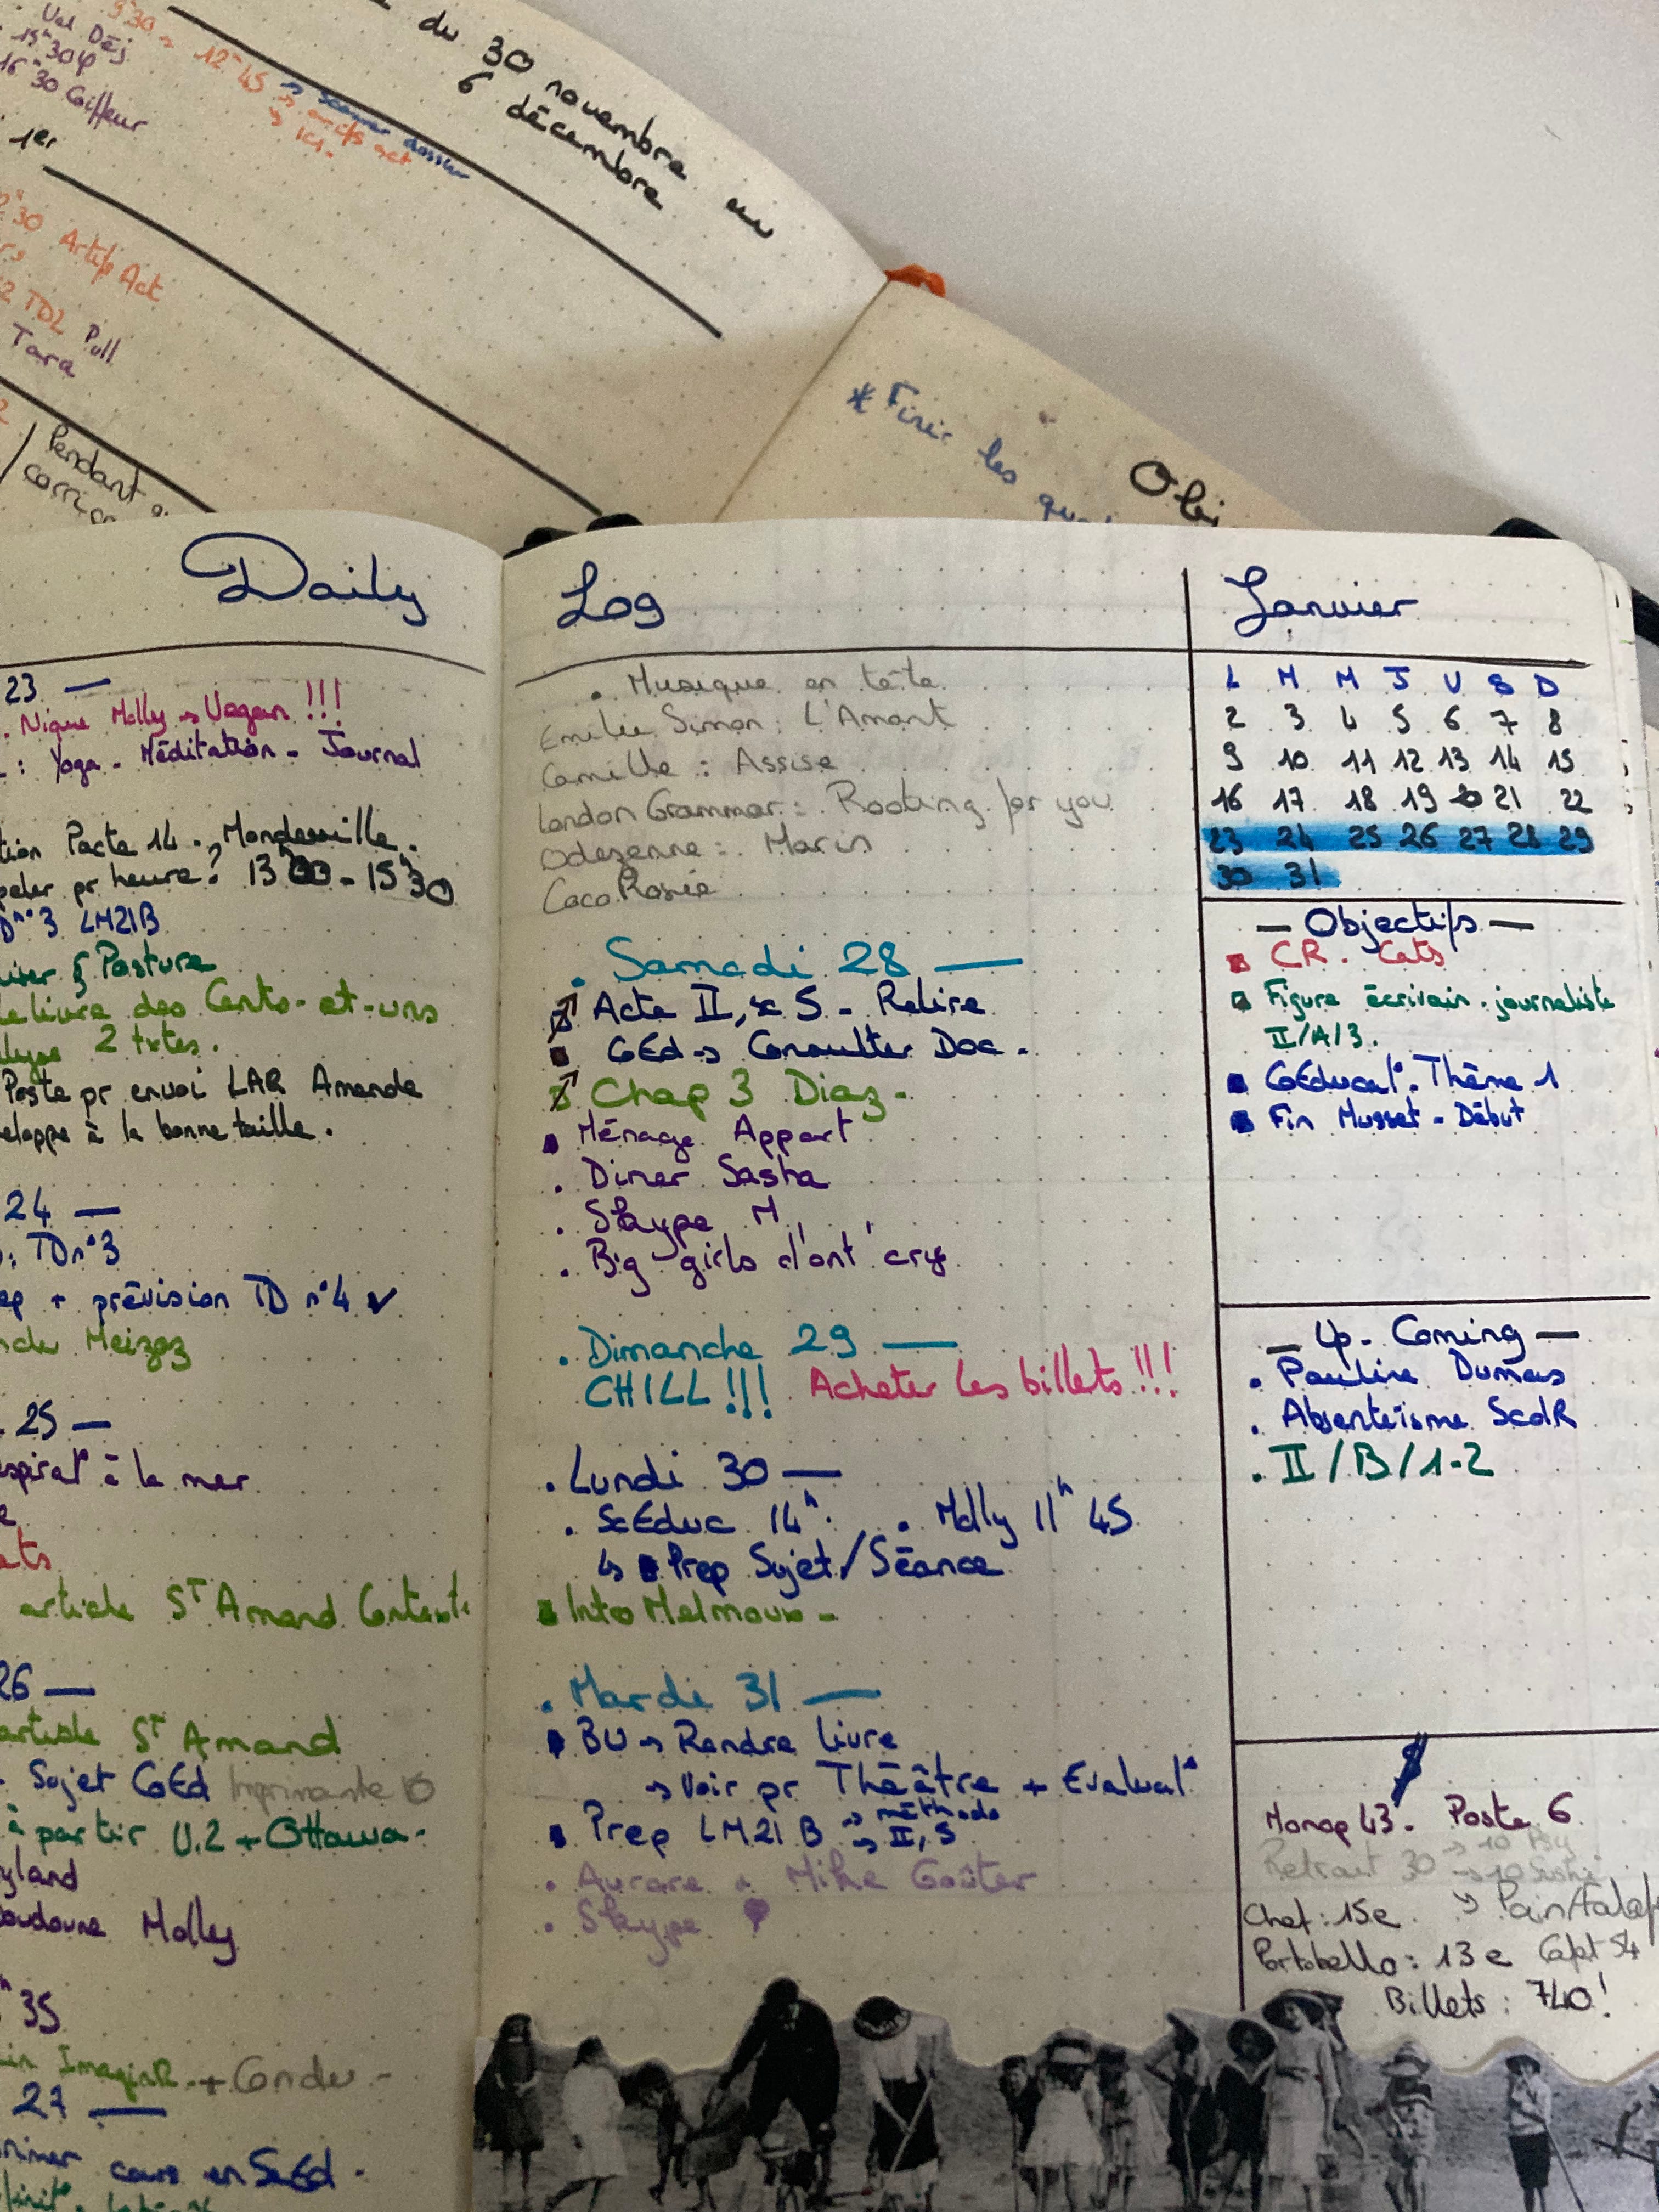 du 30 novembre au
6 décembre
15h30
16h30 Coiffeur
9h30 → 12h45 → scanner dossier
→ ici.
1er
30 Artifs Act
TD2 Pull
Tara
Pendant
* Finir les
Obj
Daily
23 —
. Nique Molly → Vegan !!!
: Yoga - Méditation - Journal
Pacte 14 - Mondeville.
peler pr heure? 13h00 - 15h30
D n°3 LM21B
§ Posture
Le livre des Cents-et-uns
lyse 2 txtes.
Poste pr envoi LAR Amende
eloppe à la bonne taille.
24 —
: TD n°3
ep + prévision TD n°4 ✓
Meizoz
25 —
spirat° à la mer
ats
article ST Amand Contexte
26 —
article ST Amand
- Sujet CoEd Imprimante
à partir U.2 + Ottawa.
yland
oudoune Molly
h35
+ Condu -
27 —
rimer cours en ScEd -
Log
. Musique en tête
Emilie Simon : L'Amant
Camille : Assise
London Grammar : Rooting for you
Odezenne : Marin
Coco Rosie
. Samedi 28 —
Acte II, sc 5 - Relire
CoEd → Consulter Doc.
Chap 3 Diaz.
Ménage Appart
. Diner Sasha
. Skype M
. Big girls d'ont' cry
. Dimanche 29 —
CHILL !!! Acheter les billets !!!
. Lundi 30 —
. ScEduc 14h. . Molly 11h45
↳ Prep Sujet/Séance
Intro Melmoux -
. Mardi 31 —
BU → Rendre livre
→ Voir pr Théâtre + Evaluat°
Prep LM21B → méthodo
→ II, 5
. Aurore & Mike Goûter
. Skype
Janvier
L M M J V S D
2 3 4 5 6 7 8
9 10 11 12 13 14 15
16 17 18 19 20 21 22
23 24 25 26 27 28 29
30 31
— Objectifs —
CR. Cats
Figure écrivain-journaliste
II/A/3.
CoEducat°. Thème 1
Fin Musset - Début
— Up-Coming —
. Pauline Dumas
. Absentéisme ScdR
. II/B/1-2
$
Monop 43. Poste 6
Retrait 30 → 10 Psy
→ 10 Sushi
Chat : 15e. → Pain/falaf
Portobello : 13e
Billets : 740!